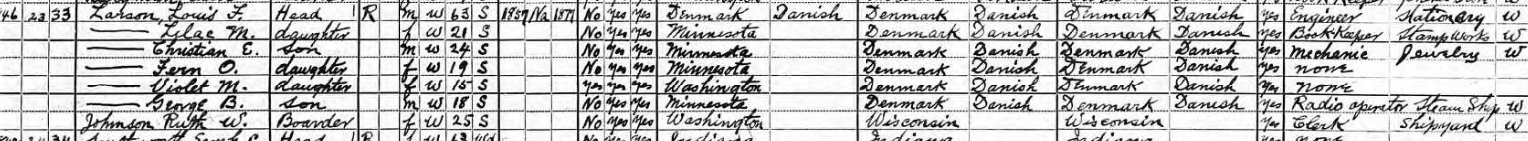 46 23 33 Larson, Louis F. Head R M W 63 S 1857 Na 1879 No Yes Yes Denmark Danish Denmark Danish Denmark Danish Yes Engineer Stationary W
—— Lilac M. daughter f W 21 S No Yes Yes Minnesota Denmark Danish Denmark Danish Yes Book Keeper Stamp Works W
—— Christian E. son m W 24 S No Yes Yes Minnesota Denmark Danish Denmark Danish Yes Mechanic Jewelry W
—— Fern O. daughter f W 19 S No Yes Yes Minnesota Denmark Danish Denmark Danish Yes none
—— Violet M. daughter f W 15 S Yes Yes Yes Washington Denmark Danish Denmark Danish Yes none
—— George B. son m W 18 S No Yes Yes Minnesota Denmark Danish Denmark Danish Yes Radio operator Steam Ship W
Johnson Ruth W. Boarder f W 25 S No Yes Yes Washington Wisconsin Wisconsin Yes Clerk Shipyard W